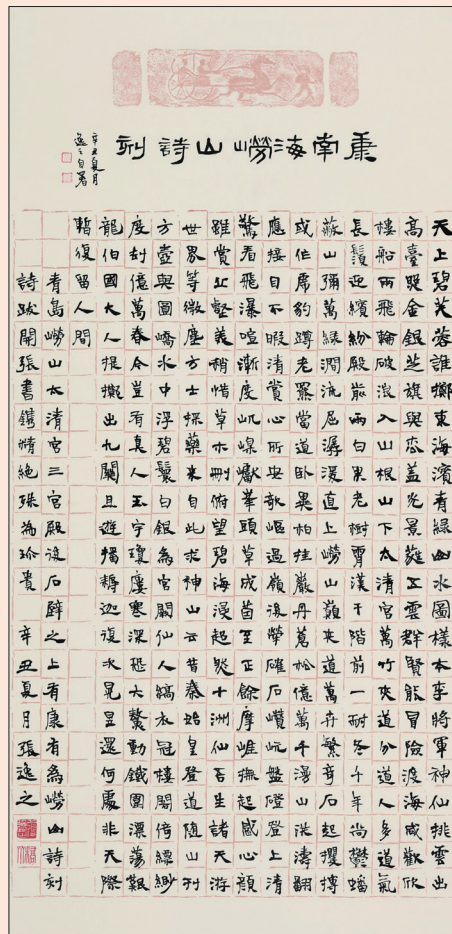 康南海嶗山詩刻
辛丑夏月
逸之自署
天上碧芙蓉誰擲東海濱青綠山水圖樣本李將軍神仙排雲出
高臺照金銀芝旗與蓋光景蕤五雲群賢能冒險渡海咸歡欣
樓船兩飛輪破浪入山根老下太清宮萬竹夾道分道人多道氣
長鬚迎繽紛殿嚴兩白果老樹霄漢干階前一耐冬千年尚鬱蟠
蔽山彌萬綠澗流屈潺湲直上嶗山巔來道萬卉繁奇石起攫搏
或作虎豹蹲老羆當道臥異柏挂巖丹蒼松億萬千山洪濤翻
應接目不暇清賞心所央欹嶇過嶺後犖確石巑岏盤磴登上清
驚看飛瀑喧漸度屼嵲巘華頭草成茵至正餘摩崖撫起感心顏
雖賞壑義稍惜草木刪俯望碧海浸超然十洲仙吾生諸天游
世界等微塵方士採藥來自此求神山云昔秦始皇登道隨山刊
方壺與圓嶠水中浮碧鬟白銀為宮闕仙人縞衣冠樓閣倚縹緲
度劫億萬春今有真人玉宇瓊廔寒深恐大鰲動鐵圍漂蕩艱
龍伯國大人提擲出九關且遊搗耨迦復次晃昱還何處非天際
暫復留人間
青島嶗山太清宮三官殿後石壁之上有康有為嶗山詩刻
詩跋開張書鐫精絕殊為珍貴 辛丑夏月張逸之